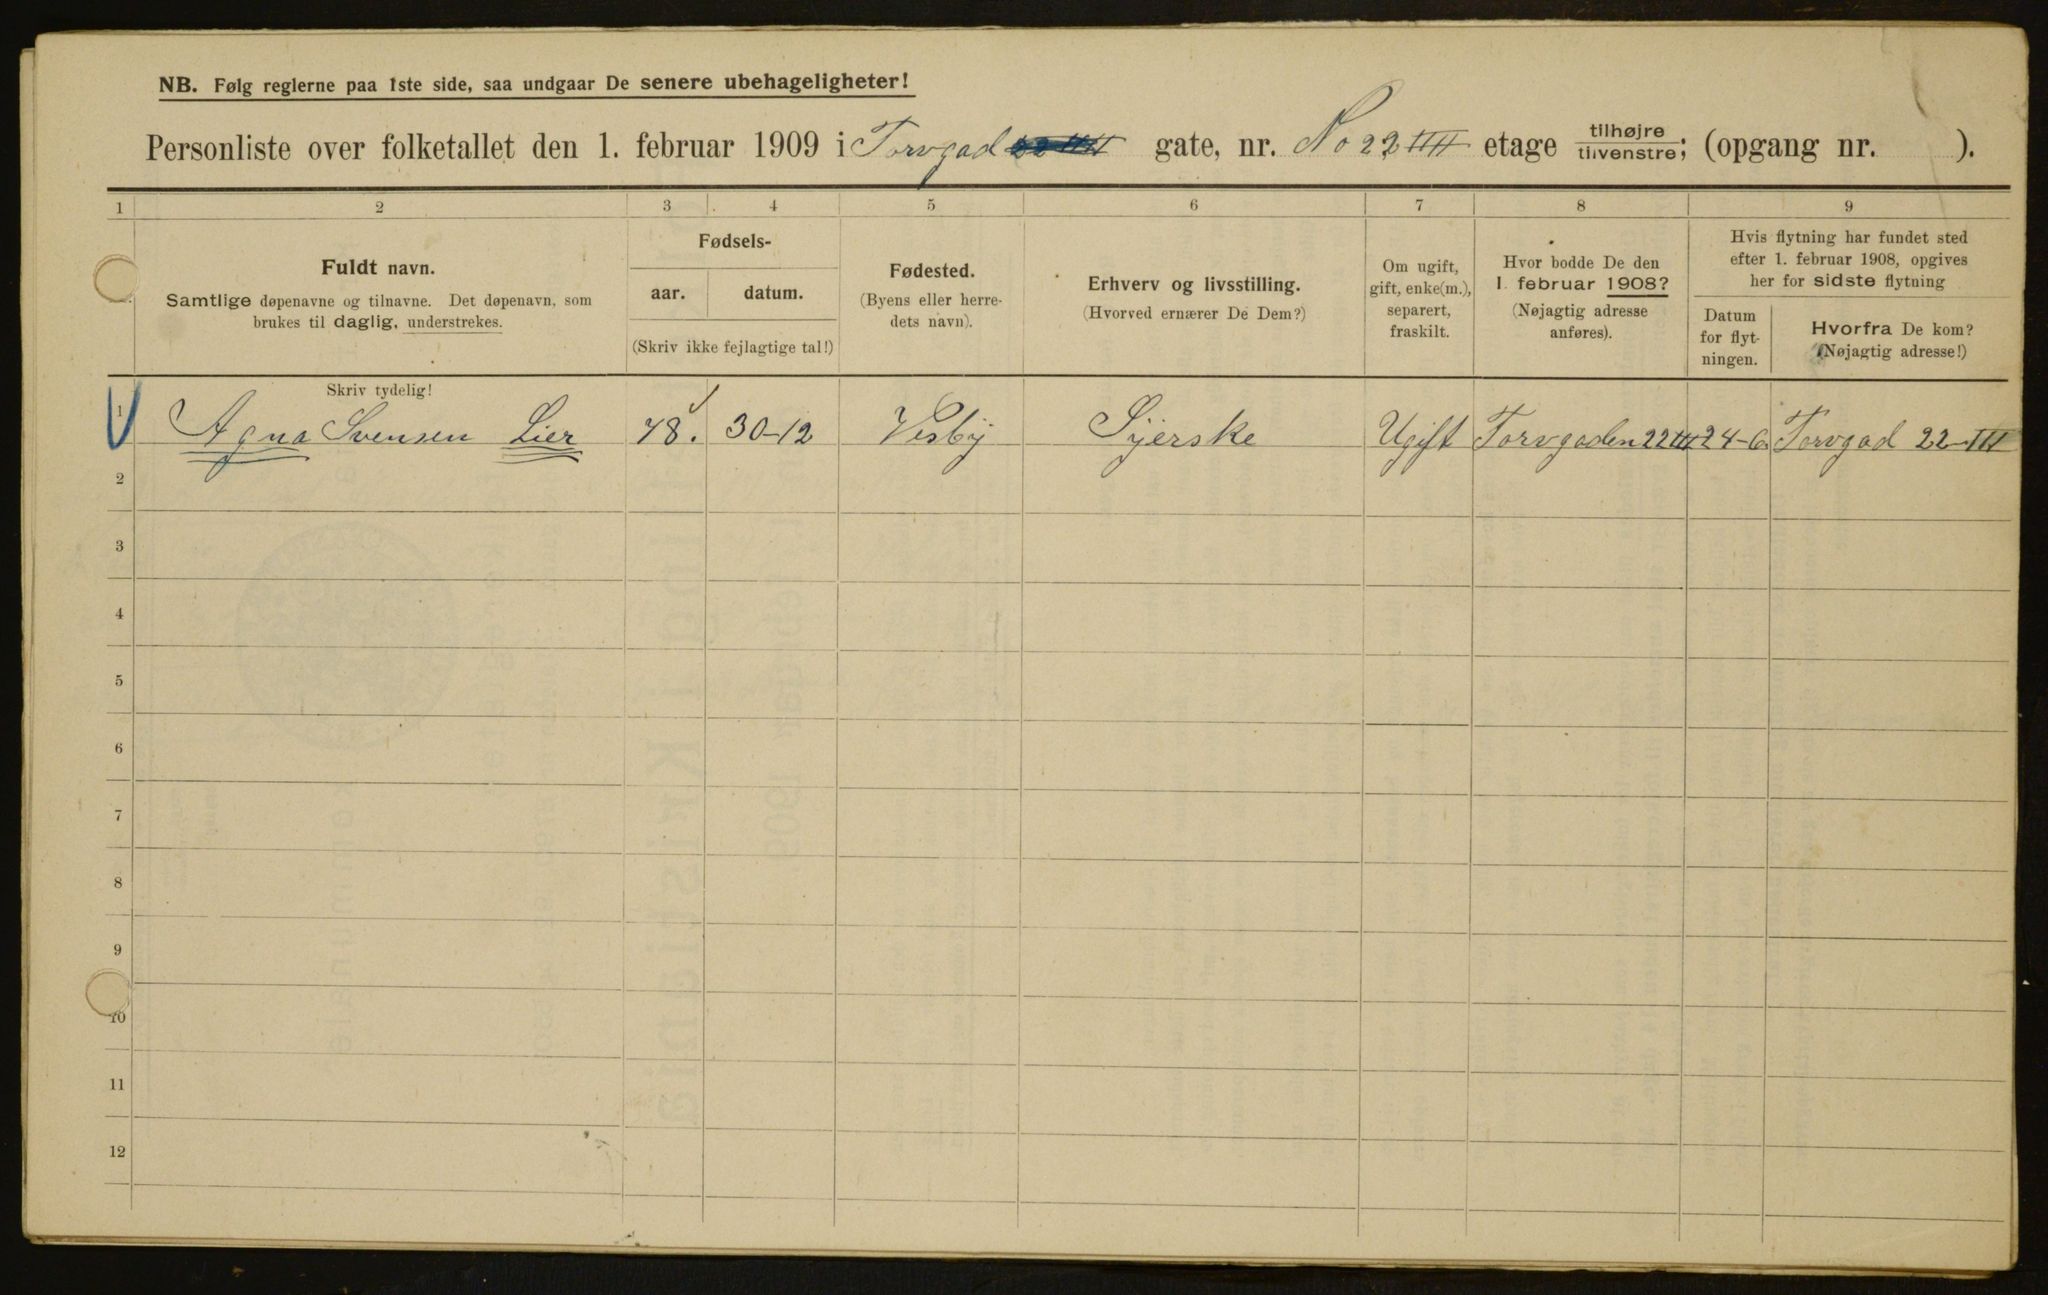 NB. Følg reglerne paa 1ste side, saa undgaar De senere ubehageligheter!
Personliste over folketallet den 1. februar 1909 i Torvgad gate, nr. No 22 IIII etage tilhøjre tilvenstre; (opgang nr. ).
1 2 3 4 5 6 7 8 9
Fuldt navn.
Samtlige døpenavne og tilnavne. Det døpenavn, som
brukes til daglig, understrekes.
Fødsels-
aar. datum.
(Skriv ikke fejlagtige tal!)
Fødested.
(Byens eller herre-
dets navn).
Erhverv og livsstilling.
(Hvorved ernærer De Dem?)
Om ugift,
gift, enke(m.),
separert,
fraskilt.
Hvor bodde De den
1. februar 1908?
(Nøjagtig adresse
anføres).
Hvis flytning har fundet sted
efter 1. februar 1908, opgives
her for sidste flytning
Datum
for flyt-
ningen.
Hvorfra De kom?
(Nøjagtig adresse!)
Skriv tydelig!
1 Agna Svensen Lier 48. 30-12 Visby Syerske Ugift Torvgaden 22 III 24-6 Torvgad 22-III
2
3
4
5
6
7
8
9
10
11
12